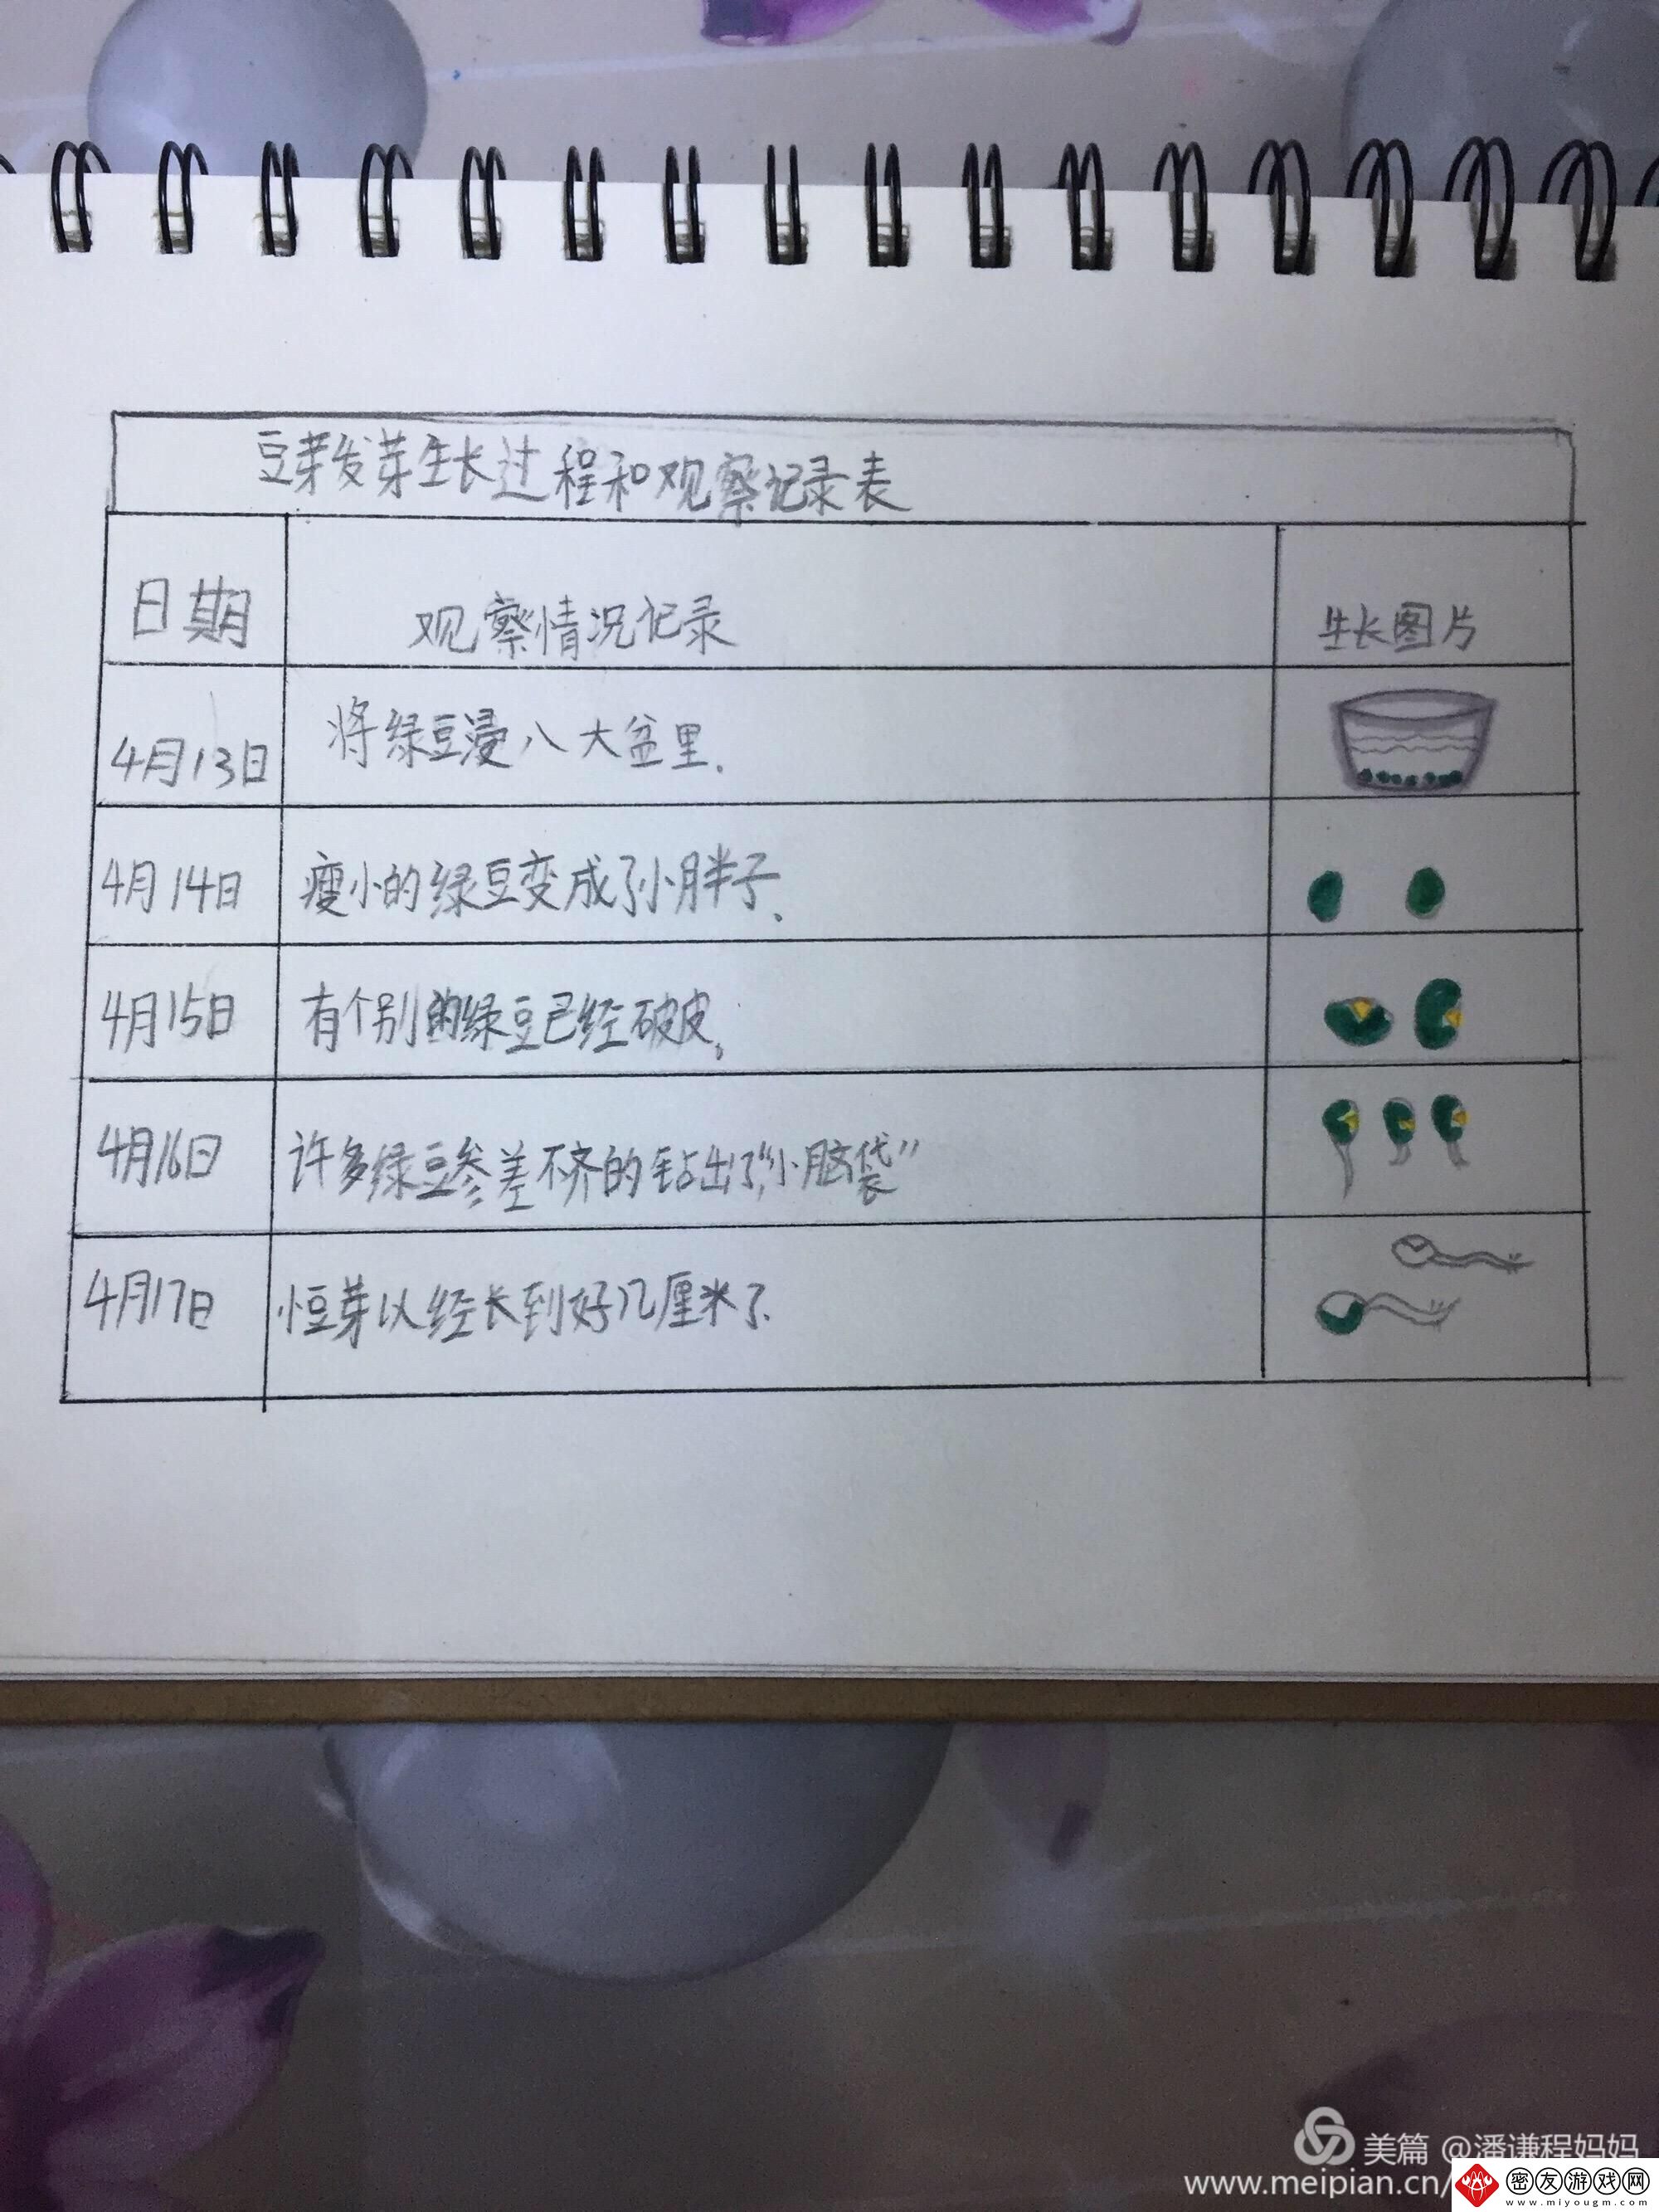 豆芽发芽生长过程和观察记录表
日期 观察情况记录 生长图片
4月13日 将绿豆浸八大盆里.
4月14日 瘦小的绿豆变成了小胖子、
4月15日 有个别的绿豆已经破皮。
4月16日 许多绿豆参差不齐的钻出了“小脑袋”
4月17日 小豆芽以经长到好几厘米了.
美篇 @潘谦程妈妈
www.meipian.cn/
密友游戏网
www.miyougm.com